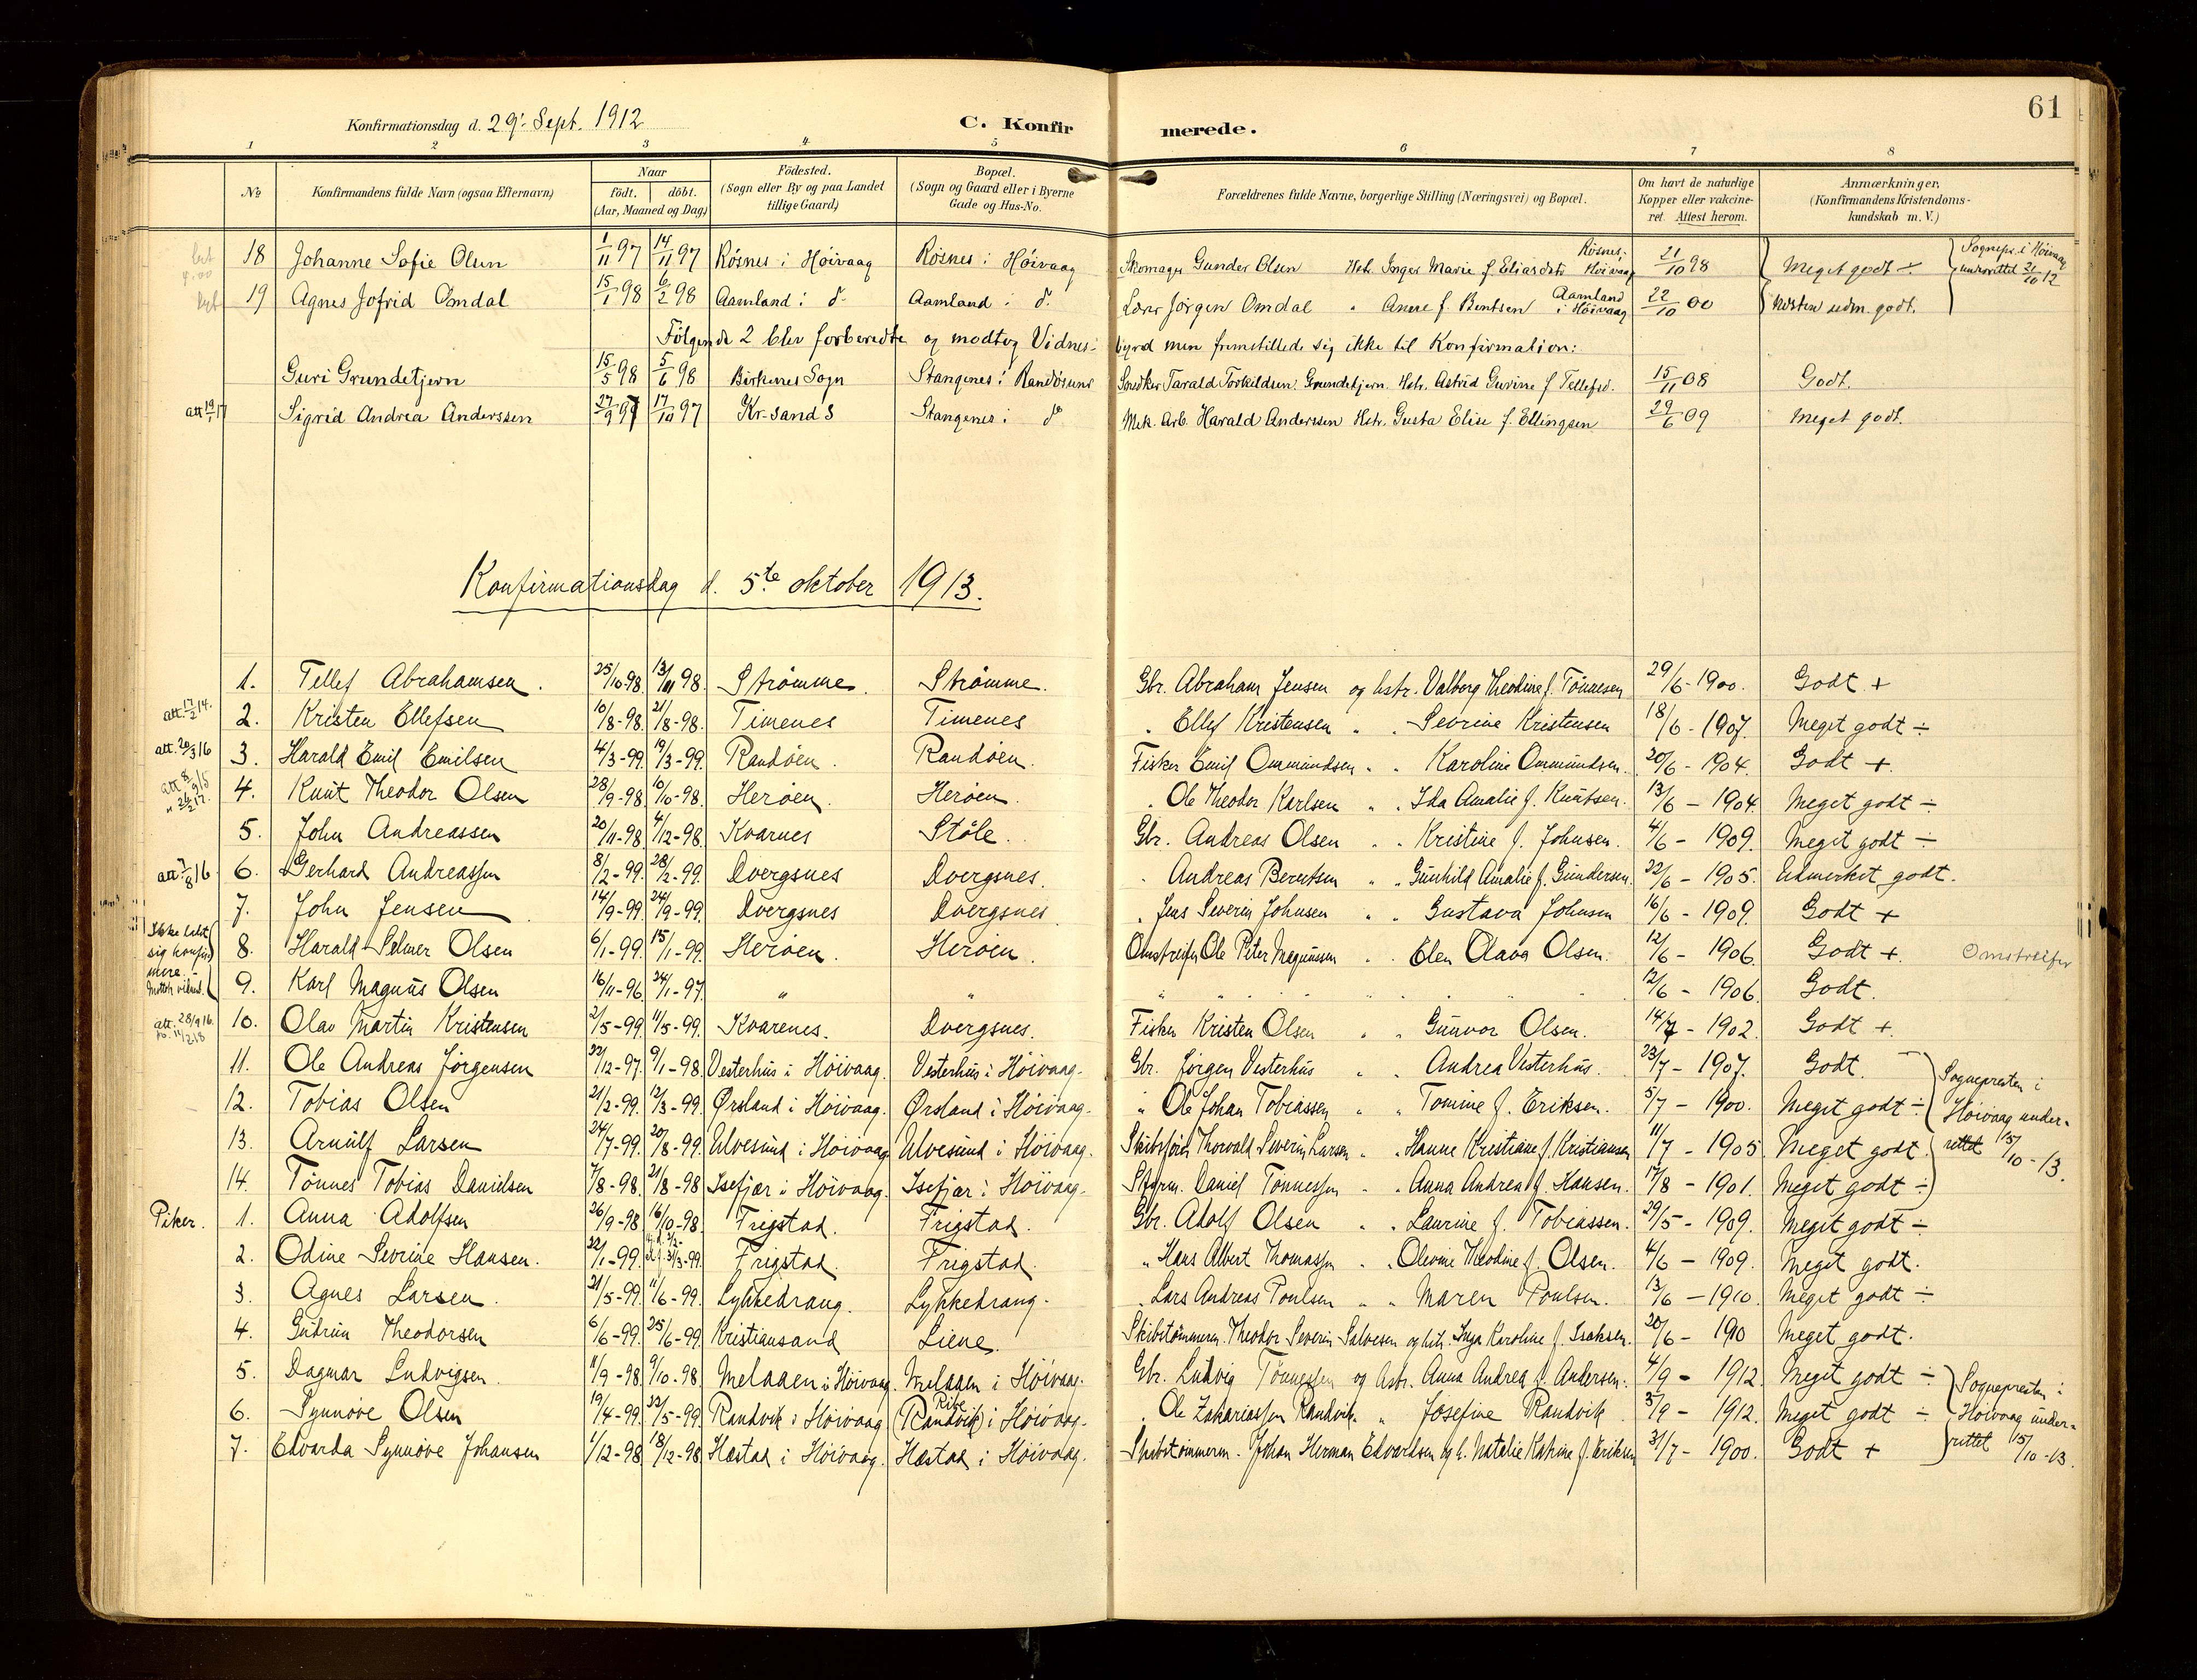 61
Konfirmationsdag d. 29' Sept. 1912 C. Konfir merede.
1 2 3 4 5 6 7 8
No. Konfirmandens fulde Navn (ogsaa Efternavn) Naar født. døbt. (Aar, Maaned og Dag) Fødested. (Sogn eller By og paa Landet tillige Gaard) Bopæl. (Sogn og Gaard eller i Byerne Gade og Hus-No. Forældrenes fulde Navne, borgerlige Stilling (Næringsvei) og Bopæl. Om havt de naturlige Kopper eller vakcineret. Attest herom. Anmærkninger. (Konfirmandens Kristendomskundskab m. V.)
18 Johanne Sofie Olsen 1/11 97 14/11 97 Røsnes i Høivaag Røsnes i Høivaag Skomager Gunder Olsen Hstr. Inger Marie f. Eliasdtr. Røsnes, Høivaag 21/10 98 Meget godt ÷ Sognepr. i Høivaag underrettet 2/10 12
19 Agnes Jofrid Omdal 15/1 98 6/2 98 Aamland i do. Aamland i do. Lærer Jørgen Omdal " Anne f. Bentsen Aamland i Høivaag 22/10 00 Næsten udm. godt.
Følgende 2 blev forberedte og modtog Vidnesbyrd men fremstillede sig ikke til Konfirmation:
Guri Grundetjern 15/5 98 5/6 98 Birkenes Sogn Stangenes i Randøsund Tarald Torkildsen Grundetjern. Hstr. Astrid Gurine f. Tellefsd. 15/11 08 Godt.
att 19/1 17 Sigrid Andrea Anderssen 27/9 97 17/10 97 Kr-sand S Stangenes i do Mek. Arb. Harald Anderssen Hstr. Gusta Elise f. Ellingsen 29/6 09 Meget godt.
Konfirmationsdag d. 5te oktober 1913.
1. Tellef Abrahamsen. 25/10-98. 13/11 98. Strømme. Strømme. Gbr. Abraham Jensen og hstr. Valborg Theodine f. Tønnesen 29/6-1900. Godt +
att. 17/2 14. 2. Kristen Ellefsen 10/8-98. 21/8-98. Timenes Timenes " Ellef Kristensen " " Sevrine Kristensen 18/6-1907. Meget godt ÷
att. 20/3 16 3. Harald Emil Emilsen 4/3-99. 19/3-99. Randøen. Randøen. Fisker Emil Ommundsen " " Karoline Ommundsen. 20/6-1904. Godt +.
4. Knut Theodor Olsen 28/9-98. 10/10-98. Herøen. Herøen. " Ole Theodor Karlsen " " Ida Amalie f. Knutsen. 13/6-1904. Meget godt ÷
5. John Andreassen 20/11-98. 4/12-98. Kvarnes Støle. Gbr. Andreas Olsen " " Kristine f. Johnsen. 4/6-1909. Meget godt ÷
att. 7/8 16 6. Gerhard Andreassen 8/2-99. 28/2-99. Dvergsnes Dvergsnes. " Andreas Berntsen " " Gunhild Amalie f. Gundersen. 22/6-1905. Udmerket godt.
7. John Jensen 14/9-99. 24/9-99. Dvergsnes Dvergsnes " Jens Severin Johnsen " " Gustava Johnsen 16/6-1909. Godt +
Ikke latt sig konfirmere. Mottok vidnesb. 8. Harald Selmer Olsen 6/1-99. 15/1-99. Herøen. Herøen. Omstreifer Ole Peter Magnussen " " Elen Olava Olsen. 12/6-1906. Godt +. Omstreifer
9. Karl Magnus Olsen 16/11-96. 24/1-97. " " " " " " 12/6-1906. Godt.
att. 28/9 16. 10. Olav Martin Kristensen 2/5-99. 11/5-99. Kvarenes. Dvergsnes. Fisker Kristen Olsen " " Gunvor Olsen. 14/7-1902. Godt +.
11. Ole Andreas Jørgensen 22/12-97. 9/1-98. Vesterhus i Høivaag. Vesterhus i Høivaag. Gbr. Jørgen Vesterhus " " Andrea Vesterhus. 23/7-1907. Godt. Sognepresten i
12. Tobias Olsen 21/2-99. 12/3-99. Ørsland i Høivaag. Ørsland i Høivaag. " Ole Johan Tobiassen " " Tomine f. Eriksen. 5/7-1900. Meget godt ÷ Høivaag under-
13. Arnulf Larsen 24/7-99. 20/8-99. Ulvesund i Høivaag Ulvesund i Høivaag. Skibsfører Thorvald Severin Larsen " " Hanne Kristiane f. Kristiansen 11/7-1905 Meget godt. rettet 15/10-13.
14. Tønnes Tobias Danielsen 7/8-98. 21/8-98 Isefjær i Høivaag. Isefjær i Høivaag. Styrm. Daniel Tønnessen " " Anna Andrea f. Hansen. 17/8-1901. Meget godt ÷
Piker. 1. Anna Adolfsen 26/9-98. 16/10-98. Frigstad. Frigstad. Gbr. Adolf Olsen " " Laurine f. Tobiassen. 29/5-1909. Meget godt ÷
2. Odine Sevrine Hansen. 22/1-99. 31/3-99. Frigstad. Frigstad. " Hans Albert Thomassen " " Olevine Theodine f. Olsen. 4/6-1909. Meget godt.
3. Agnes Larsen. 21/5-99. 11/6-99. Lykkedrang. Lykkedrang. " Lars Andreas Poulsen " " Maren Poulsen. 13/6-1910. Meget godt ÷
4. Gudrun Theodorsen 6/6-99. 25/6-99. Kristiansand Liene. Skibstømmerm. Theodor Severin Salvesen og hstr. Inga Karoline f. Isaksen. 20/6-1910 Meget godt.
5. Dagmar Ludvigsen. 11/9-98. 9/10-98 Melaaen i Høivaag. Melaaen i Høivaag. Gbr. Ludvig Tønnessen og hstr. Anna Andrea f. Andersen. 4/9-1912. Meget godt ÷ Sognepresten i
6. Synnøve Olsen 19/4-99. 22/5-99. Randvik i Høivaag (Randvik) Ribe i Høivaag. " Ole Zakariassen Randvik " Josefine Randvik 5/9-1912. Meget godt ÷ Høivaag under-
7. Edvarda Synnøve Johansen 1/12-98. 18/12-98. Hæstad i Høivaag. Hæstad i Høivaag. Skibstømmerm. Johan Herman Edvardsen og h. Natalie Katrine f. Eriksen 31/7-1900. Godt + rettet 15/10-13.